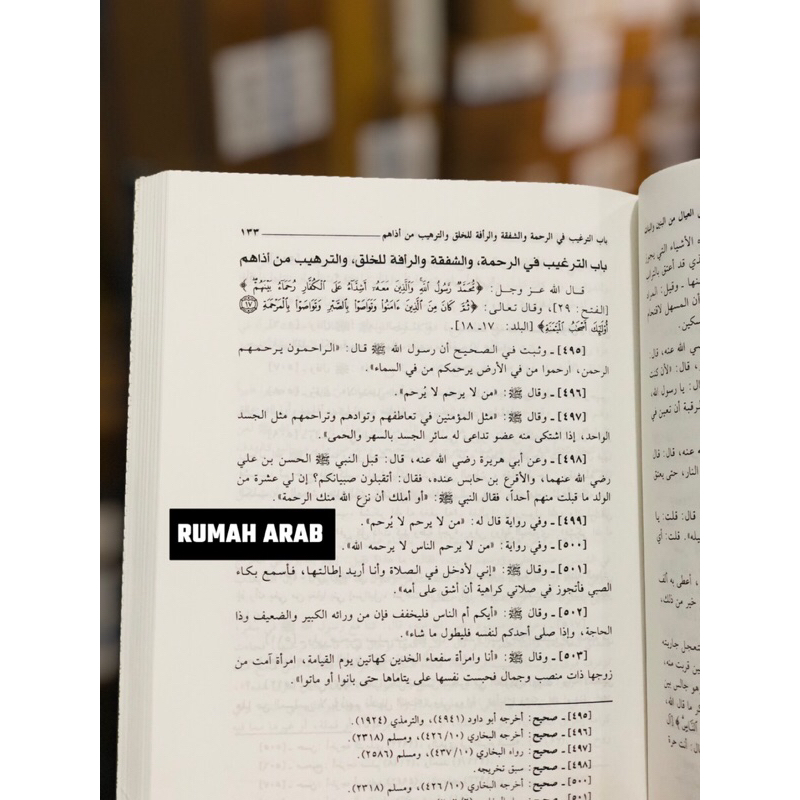 باب الترغيب في الرحمة والشفقة والرأفة للخلق والترهيب من أذاهم ١٣٣
باب الترغيب في الرحمة، والشفقة والرأفة للخلق، والترهيب من أذاهم
قال الله عز وجل: ﴿مُّحَمَّدٌ رَّسُولُ اللَّهِ وَالَّذِينَ مَعَهُ أَشِدَّاءُ عَلَى الْكُفَّارِ رُحَمَاءُ بَيْنَهُمْ﴾
[الفتح: ٢٩]، وقال تعالى: ﴿ثُمَّ كَانَ مِنَ الَّذِينَ ءَامَنُوا وَتَوَاصَوْا بِالصَّبْرِ وَتَوَاصَوْا بِالْمَرْحَمَةِ ١٧
أُولَٰئِكَ أَصْحَابُ الْمَيْمَنَةِ﴾ [البلد: ١٧ـ ١٨].
[٤٩٥] ـ وثبت في الصحيح أن رسول الله ﷺ قال: «الراحمون يرحمهم
الرحمن، ارحموا من في الأرض يرحمكم من في السماء».
[٤٩٦] ـ وقال ﷺ: «من لا يرحم لا يُرحم».
[٤٩٧] ـ وقال ﷺ: «مثل المؤمنين في تعاطفهم وتوادهم وتراحمهم مثل الجسد
الواحد، إذا اشتكى منه عضو تداعى له سائر الجسد بالسهر والحمى».
[٤٩٨] ـ وعن أبي هريرة رضي الله عنه، قال: قبل النبي ﷺ الحسن بن علي
رضي الله عنهما، والأقرع بن حابس عنده، فقال: أتقبلون صبيانكم؟ إن لي عشرة من
الولد ما قبلت منهم أحداً، فقال النبي ﷺ: «أو أملك أن نزع الله منك الرحمة».
[٤٩٩] ـ وفي رواية قال له: «من لا يرحم لا يُرحم».
[٥٠٠] ـ وفي رواية: «من لا يرحم الناس لا يرحمه الله».
RUMAH ARAB
[٥٠١] ـ وقال ﷺ: «إني لأدخل في الصلاة وأنا أريد إطالتها، فأسمع بكاء
الصبي فأتجوز في صلاتي كراهية أن أشق على أمه».
[٥٠٢] ـ وقال ﷺ: «أيكم أم الناس فليخفف فإن من ورائه الكبير والضعيف وذا
الحاجة، وإذا صلى أحدكم لنفسه فليطول ما شاء».
[٥٠٣] ـ وقال ﷺ: «أنا وامرأة سفعاء الخدين كهاتين يوم القيامة، امرأة آمت من
زوجها ذات منصب وجمال فحبست نفسها على يتاماها حتى بانوا أو ماتوا».
[٤٩٥] ـ صحيح: أخرجه أبو داود (٤٩٤١)، والترمذي (١٩٢٤).
[٤٩٦] ـ صحيح: أخرجه البخاري (٤٢٦/١٠)، ومسلم (٢٣١٨).
[٤٩٧] ـ صحيح: رواه البخاري (٤٣٧/١٠)، ومسلم (٢٥٨٦).
[٤٩٨] ـ صحيح: سبق تخريجه.
[٥٠٠] ـ صحيح: أخرجه البخاري (٤٢٦/١٠)، ومسلم (٢٣١٨).